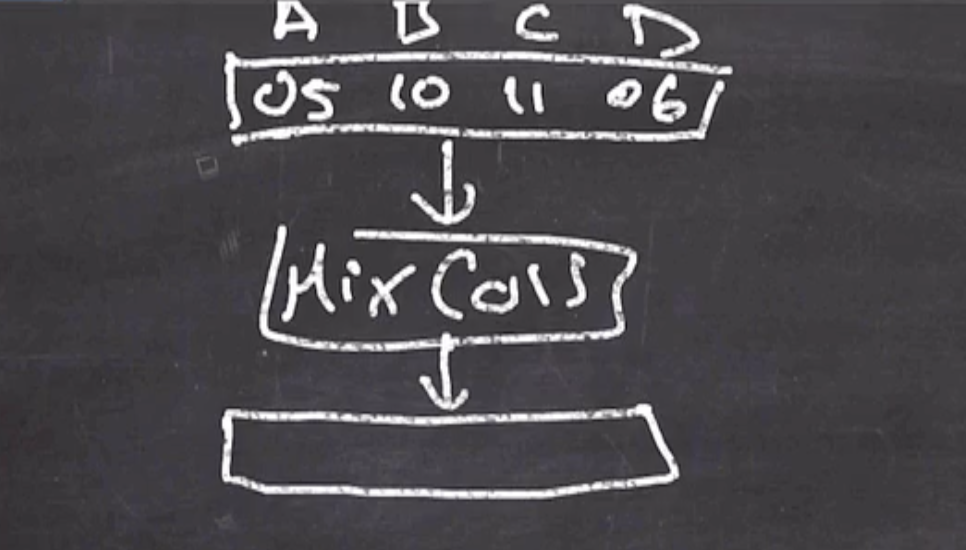 A B C D
05 10 11 06
Mix Cols